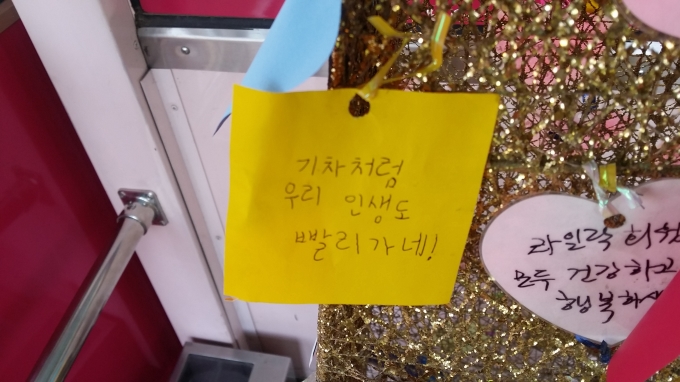 기차처럼
우리 인생도
빨리가네!
라일락
모두 건강하고